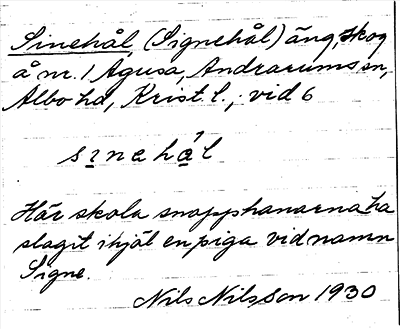 Sinehål (Signehål) äng, skog
å nr. 1 Agusa, Andrarums sn,
Albo hd, Krist. l.; vid 6
sinehål
Här skola snapphanarna ha
slagit ihjäl en piga vid namn
Signe.
Nils Nilsson 1930